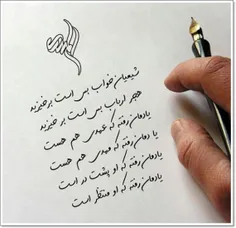 شیعیان خواب بس است برخیزید
هجر ارباب بس است برخیزید
یادمان رفته که عهدی هم هست
یادمان رفته که مهدی هم هست
یادمان رفته که او پشت در است
یادمان رفته که او منتظر است